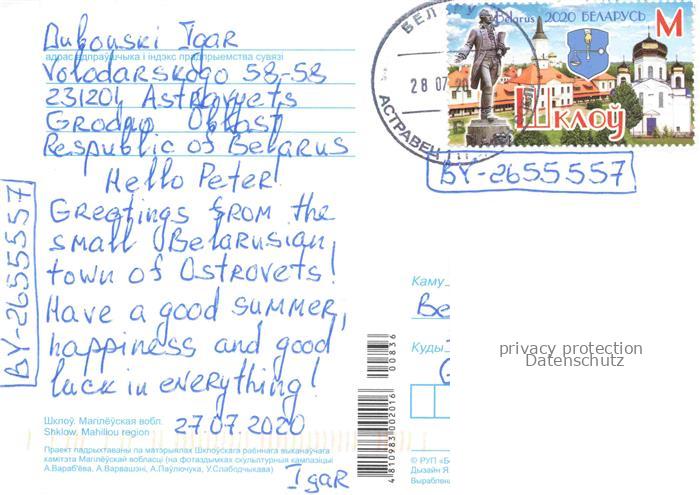 Dubouski Igar
адрас адпраўшчыка і індэкс прадпрыемства сувязі
Volodarskogo 58-58
231201 Astravyets
Grodno Oblast
Respublic of Belarus
Hello Peter!
Greetings from the
small Belarusian
town of Ostrovets!
Have a good summer,
happiness and good
luck in everything!
27.07.2020
Igar
BY-2655557
Шклоў. Магілёўская вобл.
Shklow, Mahiliou region
Праект падрыхтаваны па матэрыялах Шклоўскага раённага выканаўчага
камітэта Магілёўскай вобласці (на фотаздымках скульптурныя кампазіцыі
А.Вараб'ёва, А.Варвашэні, А.Паўлючука, У.Слабодчыкава)
Belarus 2020 БЕЛАРУСЬ
М
Шклоў
БЕЛ
28 07 20
АСТРАВЕЦ
BY-2655557
Каму
Be
Куды
00836
4810983002016
© РУП «Б
Дызайн Я
Выраблен
privacy protection
Datenschutz